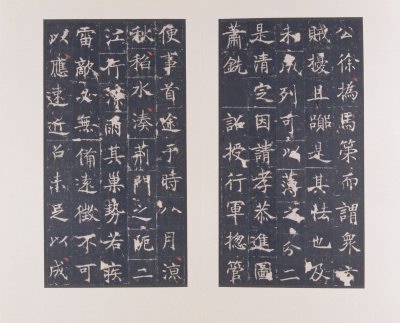 公徐撝馬策而謂眾
賊擾且是其怯也及
未成列可以蕩之分二
是清定因請孝恭進圖
蕭銑詔授行軍摠管
便事首途于時八月涼
秋稻水湊荊門之阨二
江行雨其巢勢若疾
雷敵必無備遠徵不可
以應速近召未足以成